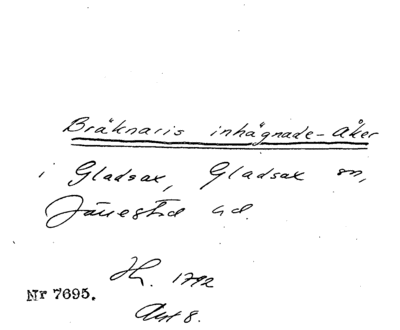 Bråknaris inhägnade-åker
i Gladsax, Gladsax sn,
Järrestad hd.
Hr. 1792
Nr 7695.
Akt 8.